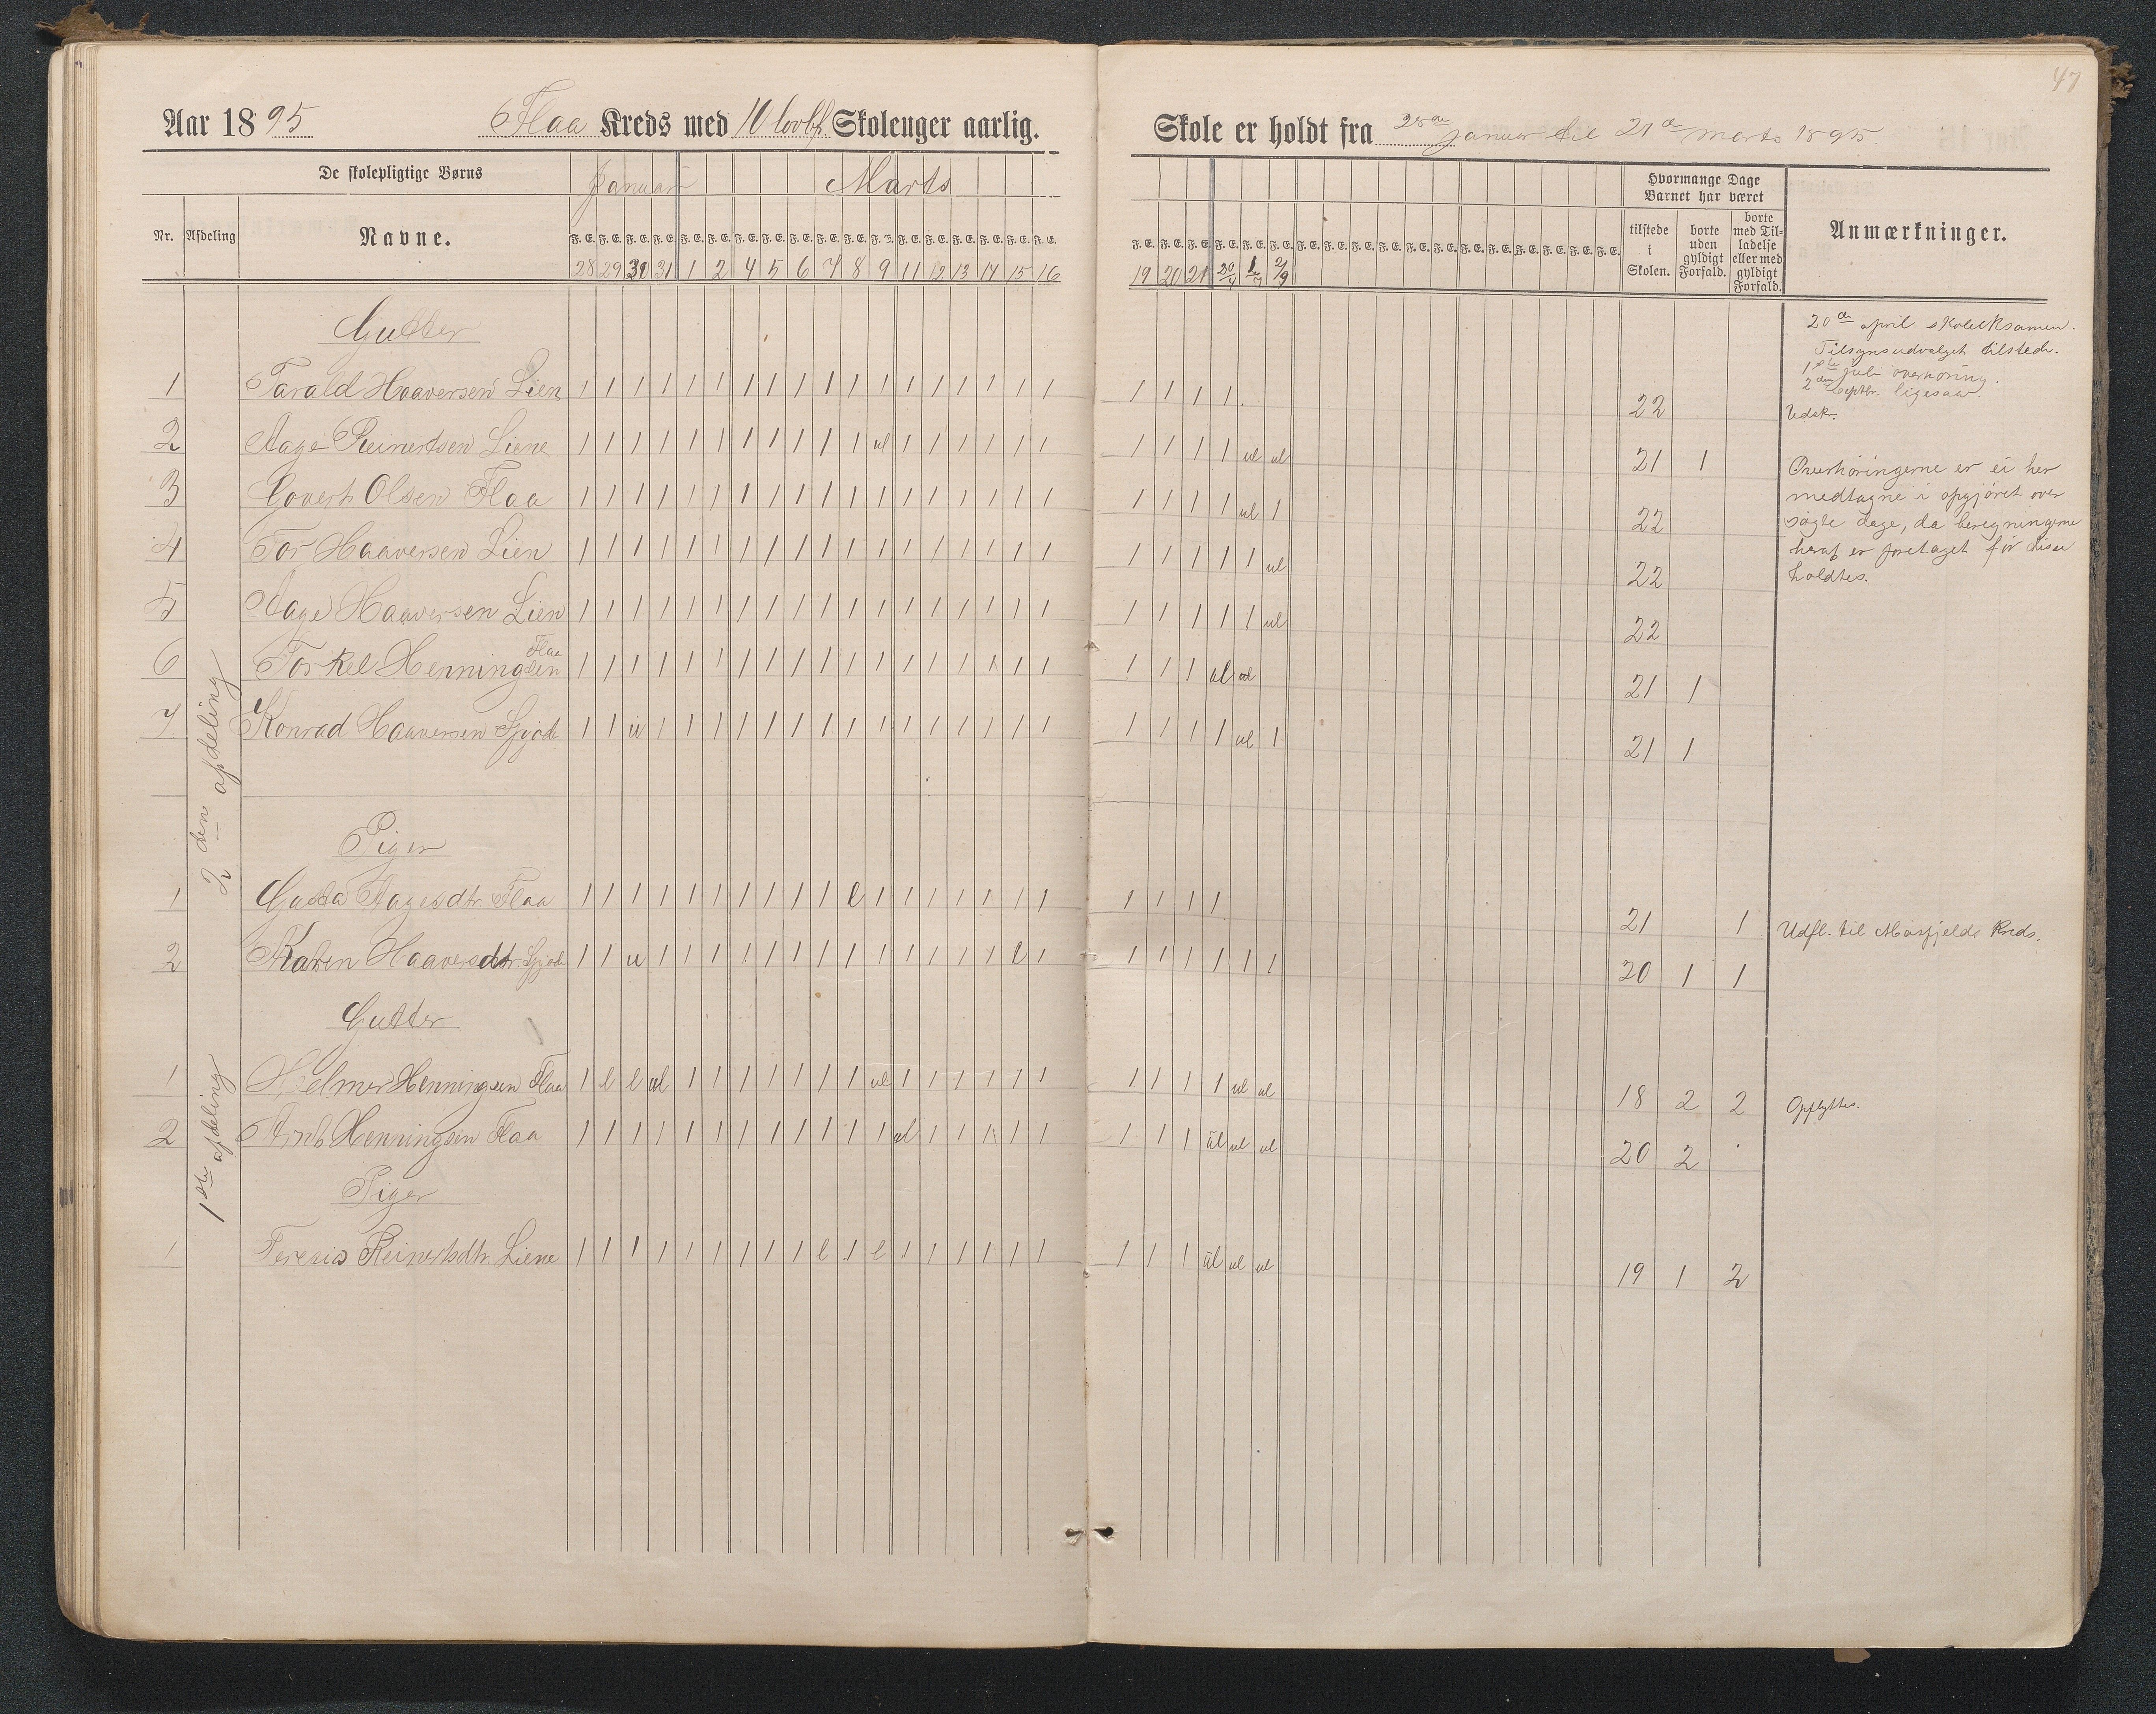 47
Aar 1895 Flaa Kreds med 10 lovbf. Skoleuger aarlig.
Skole er holdt fra 28de januar til 21de marts 1895
De skolepligtige Børns
Januar Marts
Hvormange Dage Barnet har været
Nr. Afdeling Navne.
F. E. F. E. F. E. F. E. F. E. F. E. F. E. F. E. F. E. F. E. F. E. F. E. F. E. F. E. F. E. F. E. F. E. F. E.
tilstede i Skolen. borte uden gyldigt Forfald. borte med Tilladelse eller med gyldigt Forfald. Anmærkninger.
28 29 30 31 1 2 4 5 6 7 8 9 11 12 13 14 15 16
19 20 21 20/4 1/7 2/9
Gutter
20de april skoleeksamen.
Tilsynsudvalget tilstede.
1ste juli overhøring.
2den septbr. ligesaa.
1 Tarald Haaversen Lien 1 1 1 1 1 1 1 1 1 1 1 1 1 1 1 1 1 1 1 1 1 1 . 22 Udskr.
2 Aage Reinertsen Liene 1 1 1 1 1 1 1 1 1 1 1 ul 1 1 1 1 1 1 1 1 1 1 ul ul 21 1
3 Govert Olsen Flaa 1 1 1 1 1 1 1 1 1 1 1 1 1 1 1 1 1 1 1 1 1 1 ul 1 22
4 Tor Haaversen Lien 1 1 1 1 1 1 1 1 1 1 1 1 1 1 1 1 1 1 1 1 1 1 1 ul 22
Overhøringerne er ei her
medtagne i opgjøret over
søgte dage, da beregningerne
heraf er foretaget før disse
holdtes.
5 Aage Haaversen Lien 1 1 1 1 1 1 1 1 1 1 1 1 1 1 1 1 1 1 1 1 1 1 1 ul 22
6 Torkel Henningsen Flaa 1 1 1 1 1 1 1 1 1 1 1 1 1 1 1 1 1 1 1 1 1 ul ul 21 1
7 Konrad Haaversen 1 1 u 1 1 1 1 1 1 1 1 1 1 1 1 1 1 1 1 1 1 1 ul 1 21 1
2den afdeling
Piger
1 Gusta Aagesdtr. Flaa 1 1 1 1 1 1 1 1 1 1 l 1 1 1 1 1 1 1 1 1 1 1 21 1 Udfl. til Kreds.
2 Karen Haaversdtr. 1 1 u 1 1 1 1 1 1 1 1 1 1 1 1 1 l 1 1 1 1 1 1 1 20 1 1
Gutter
1ste afdeling
1 Helmer Henningsen Flaa 1 l l ul 1 1 1 1 1 1 1 ul 1 1 1 1 1 1 1 1 1 1 ul ul 18 2 2 Opflyttes.
2 Arnt Henningsen Flaa 1 1 1 1 1 1 1 1 1 1 1 1 ul 1 1 1 1 1 1 1 1 ul ul ul 20 2
Piger
1 Teresia Reinertsdtr. Liene 1 1 1 1 1 1 1 1 1 l 1 l 1 1 1 1 1 1 1 1 1 ul ul ul 19 1 2